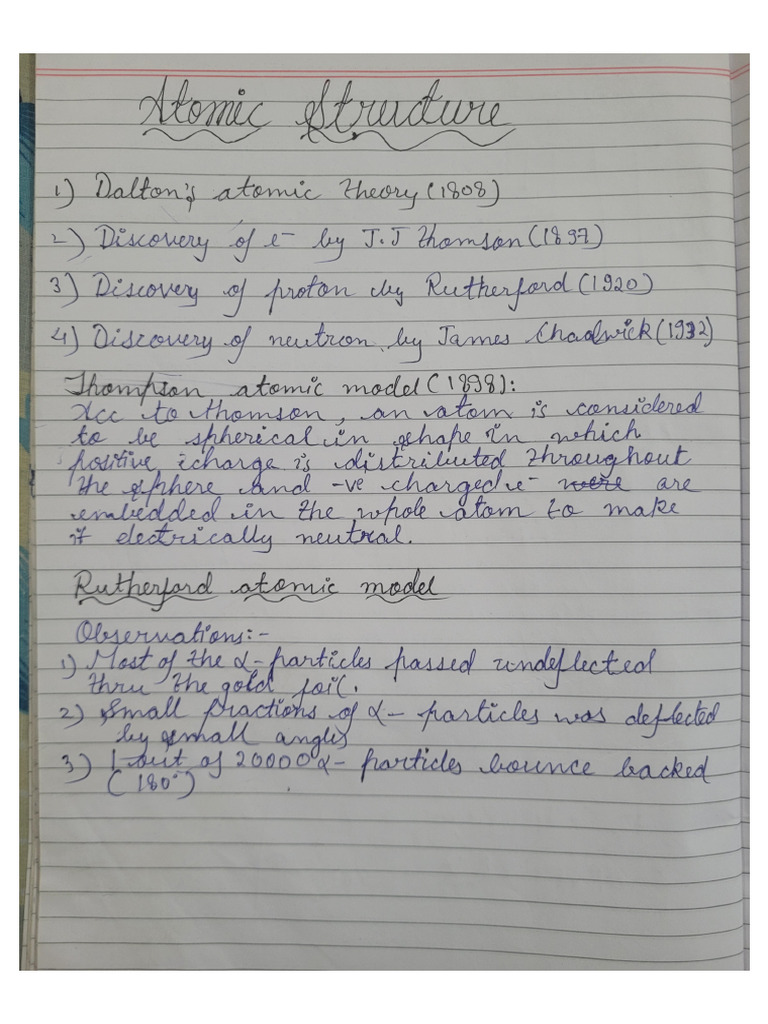 Atomic Structure
1) Dalton's atomic theory (1808)
2) Discovery of e- by J.J Thomson (1897)
3) Discovery of proton by Rutherford (1920)
4) Discovery of neutron by James Chadwick (1932)
Thompson atomic model (1898):
Acc to thomson, an atom is considered
to be spherical in shape in which
positive charge is distributed throughout
the sphere and -ve charged e- were are
embedded in the whole atom to make
it electrically neutral.
Rutherford atomic model
Observations:-
1) Most of the α-particles passed undeflected
thru the gold foil.
2) Small fractions of α- particles was deflected
by small angles
3) 1 out of 20000 α- particles bounce backed
(180°)